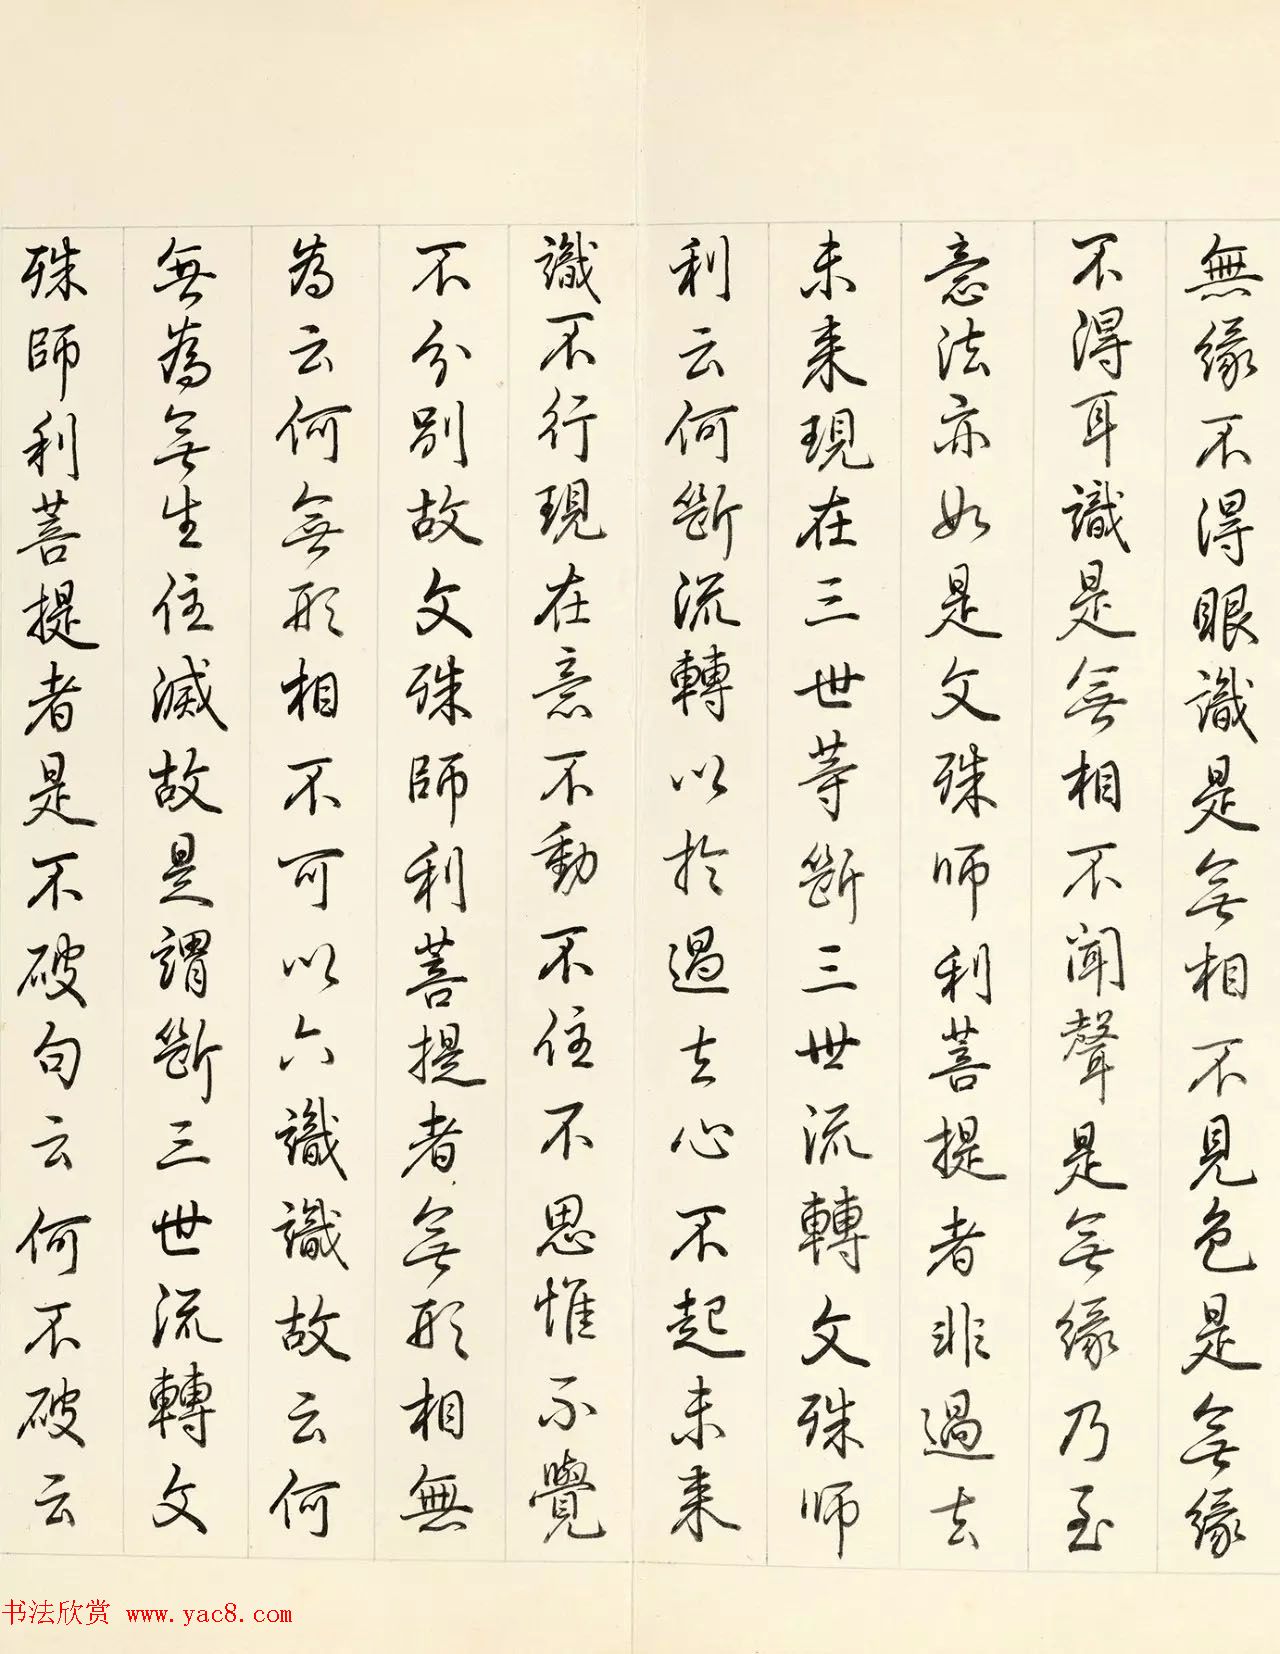 無緣不得眼識是無相不見色是無緣
不得耳識是無相不聞聲是無緣乃至
意法亦如是文殊師利菩提者非過去
未來現在三世等斷三世流轉文殊師
利云何斷流轉以於過去心不起未來
識不行現在意不動不住不思惟不覺
不分別故文殊師利菩提者無形相無
為云何無形相不可以六識識故云何
無為無生住滅故是謂斷三世流轉文
殊師利菩提者是不破句云何不破云
书法欣赏 www.yac8.com